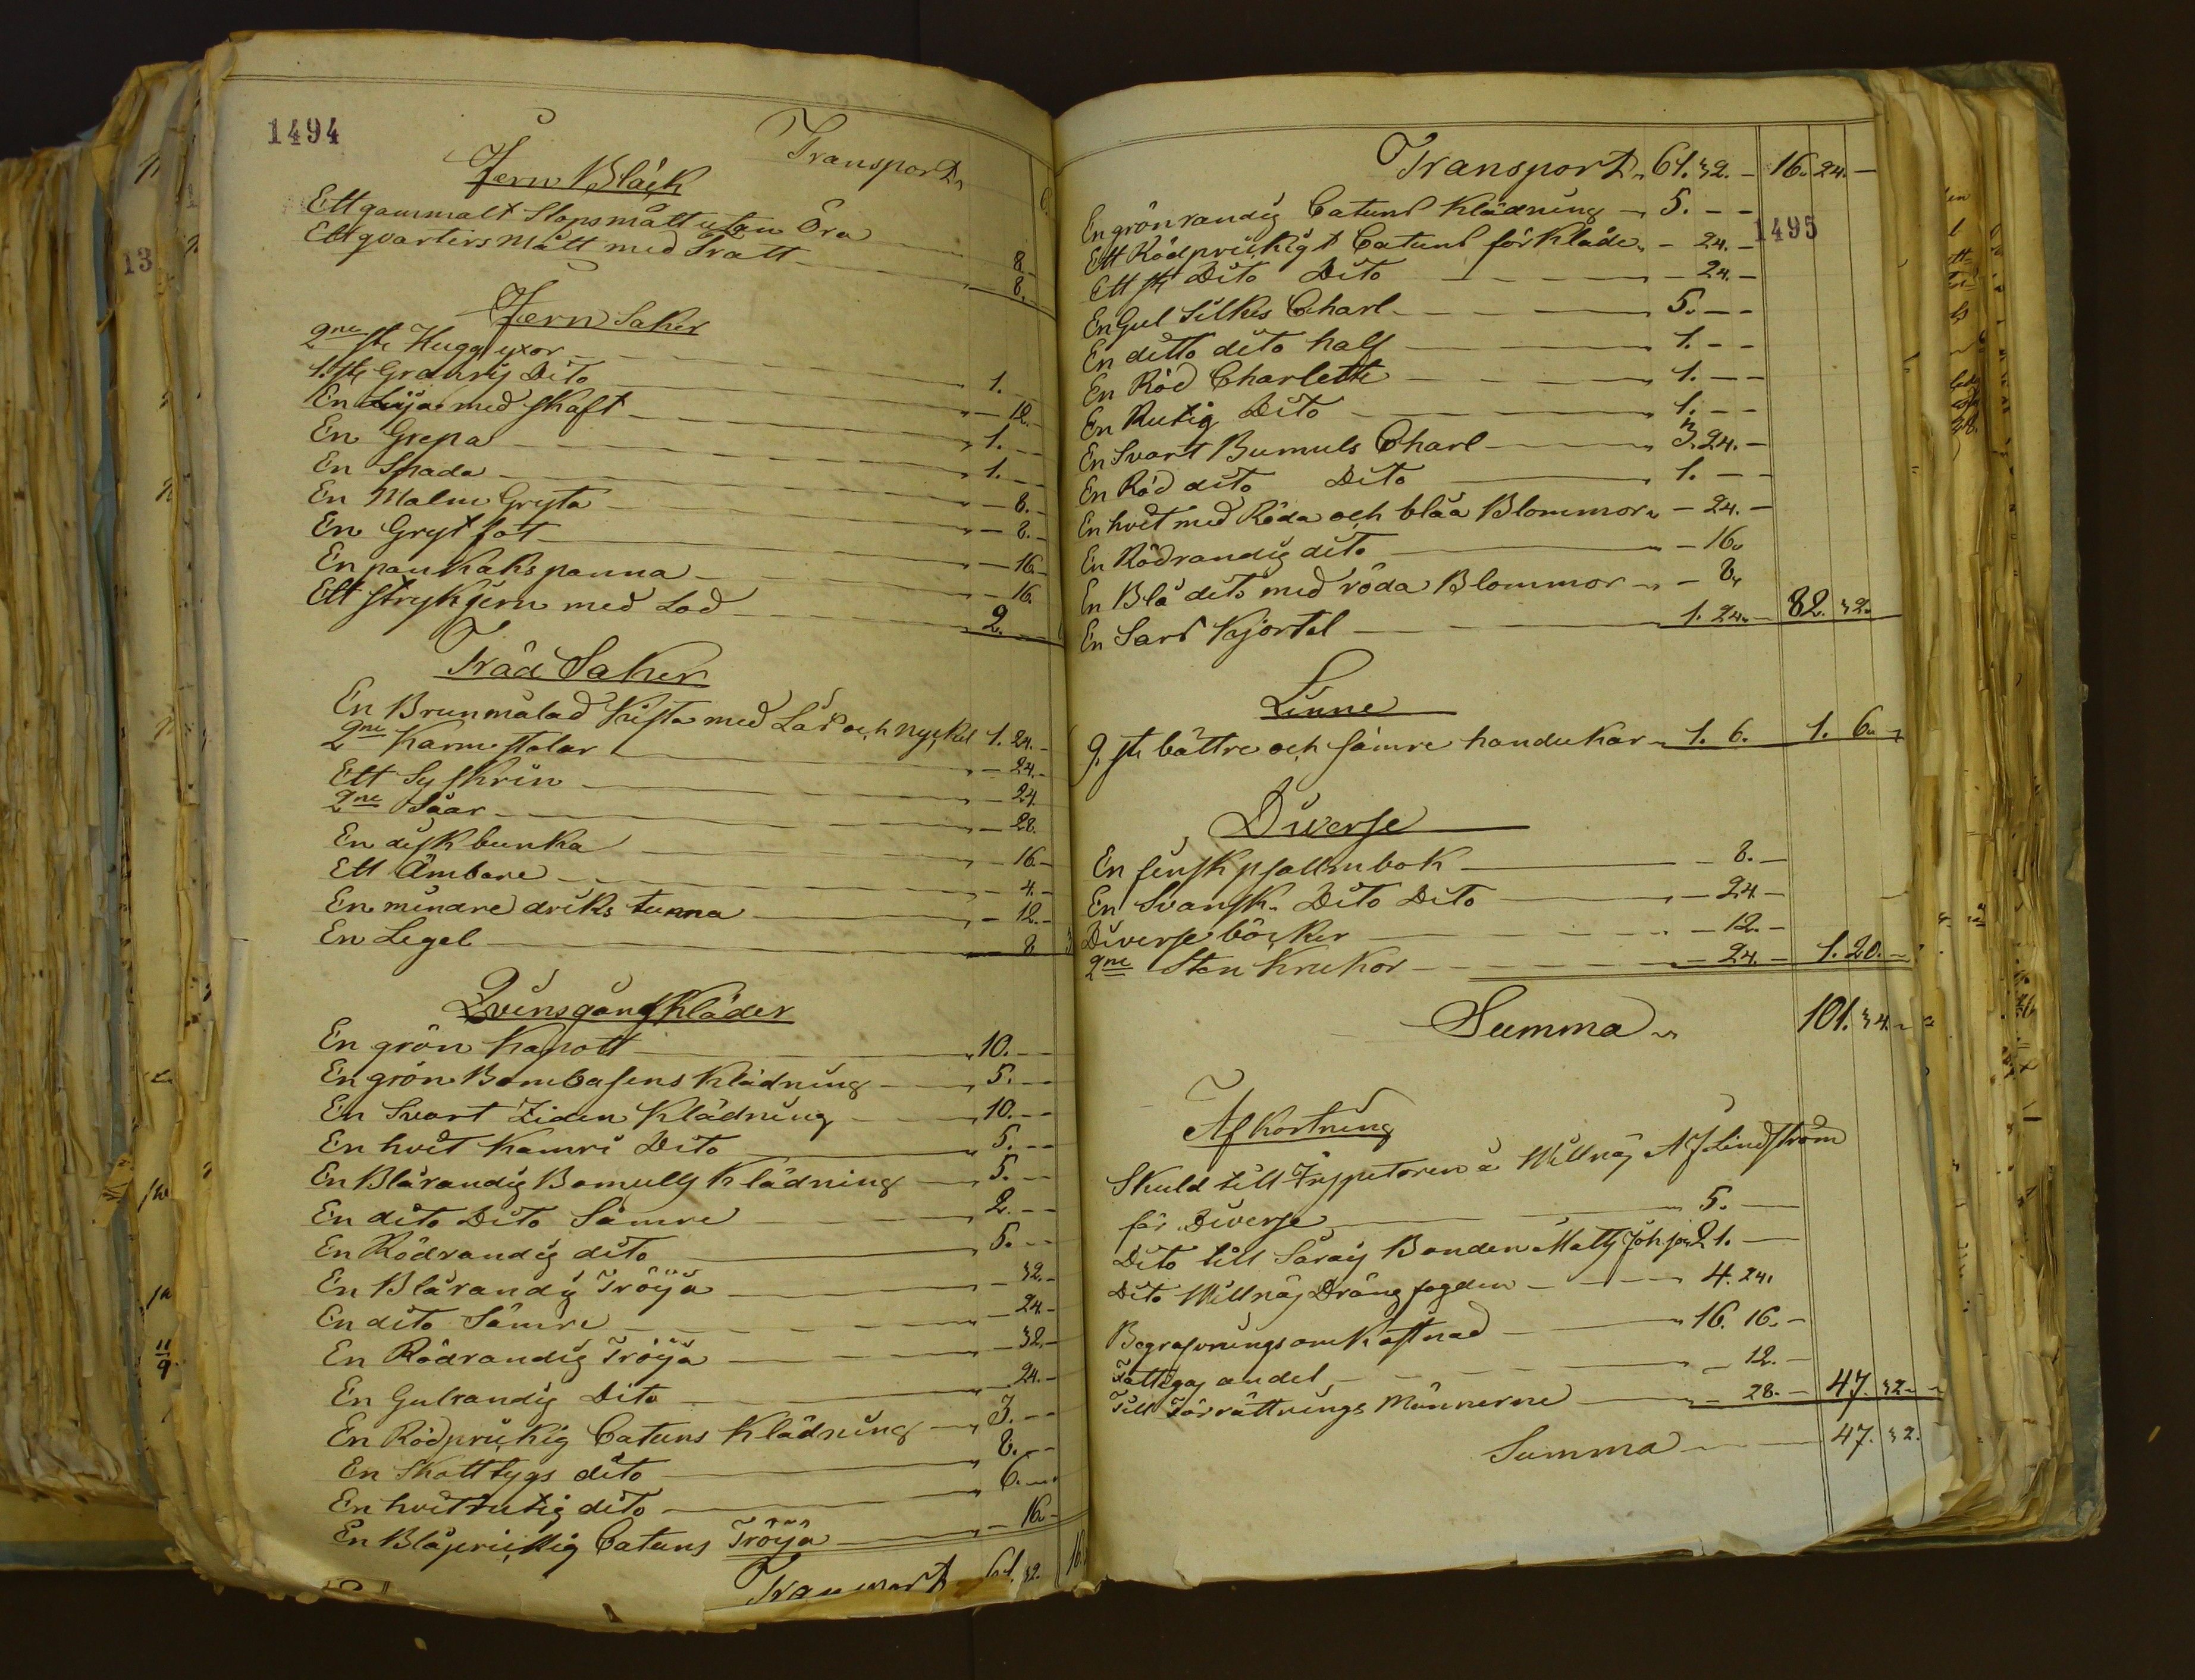 1494
Transport
Jern Bläck
Ett gammalt Stopsmått utan Öra 8.
Ett qvartirs Mått med Tratt 8.
Jern Saker
2ne st. Huggyxor 1.
1. st. Granris Dito 12.
En med skaft 1.
En Grepa 1.
En Spada 8.
En Malm Gryta 8.
En Grytfot 16
En pankaks panna 16.
Ett strykjern med Lod 2.
Träd Saker
En Brunmålad Kista med Lås och nyckel 1. 24.
2ne Karmstolar 24.
Ett Syskrin 24
2ne Såar 28.
En diskbunka 16
Ett Ämbare 4.
En mindre driks tunna 12.
En Legel 8
Qvinsgångskläder
En grön Kapott 10.
En grön Bombasens Klädning 5.
En Svart Ziden Klädning 10.
En hvit Kamri Dito 5.
En Blårandig Bomulls Klädning 5.
En dito Dito Sämre 2.
En Rödrandig dito 5.
En Blårandig Tröija 32.
En dito Sämre 24
En Rödrandig Tröija 32.
En Gulrandig Dito 24.
En Rödprickig Catuns Klädning 3.
En Skottygs dito 8.
En hvitrutig dito 6.
En Blåprickig Catuns Tröija 16
Transport 61. 32. 16.
Transport 61. 32. 16. 24.
1495
En grönrandig Catuns Klädning 5.
Ett Rödprickigt Catuns förkläde 24.
Ett st. Dito Dito 24.
En Gul Silkes Charl 5.
En ditto dito half 1.
En Röd Charlett 1.
En Rutig Dito 1.
En Svart Bumuls Charl 3. 24.
En Röd dito Dito 1.
En hvit med Röda och blåa Blommor 24.
En Rödrandig dito 16
En Blå dito med röda Blommor 8
En Sars Kjortel 1. 24. 82. 32
Linne
9. st. bättre och sämre handukar 1. 6. 1. 6.
Diverse
En finsk psallmbok 8.
En Svensk Dito Dito 24
Diverse böcker 12.
2ne Sten Krukor 24. 1. 20.
Summa 101. 34.
Afkortning
Skuld till Inspetoren å Willnäs A J Lindström
för Diverse 5.
Dito till Särais Bonden Matts Johsson 21.
Dito Willnäs Drängfogden 4. 24.
Begrafvningsomkostnad 16. 16.
Fattigas andel 12.
Till Förrättnings Männerne 28. 47. 32
Summa 47. 32.